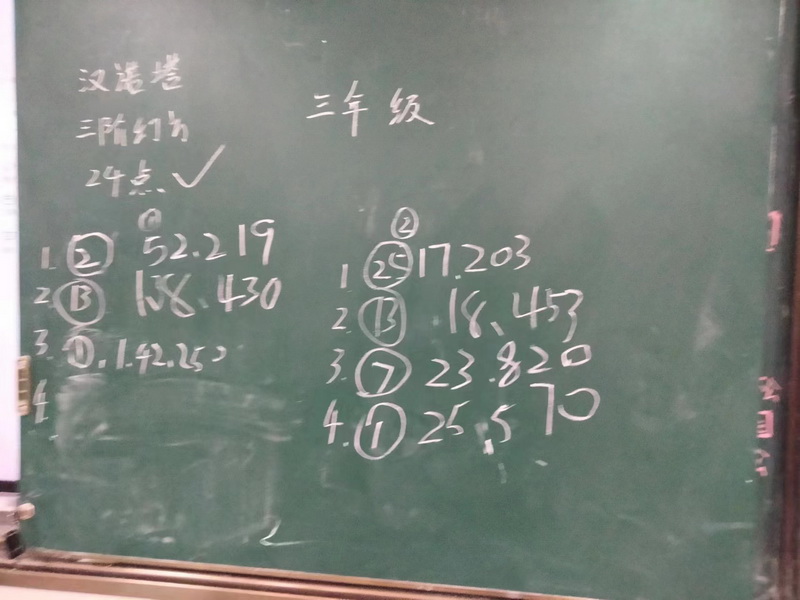 汉诺塔
三阶幻方
24点 ✓
三年级
①
1. ② 52.219
2. ⑬ 1.58.430
3. ⑪. 1.42.25
4
②
1 ㉕ 17.203
2. ⑬ 18.453
3. ⑦ 23.820
4. ① 25.570